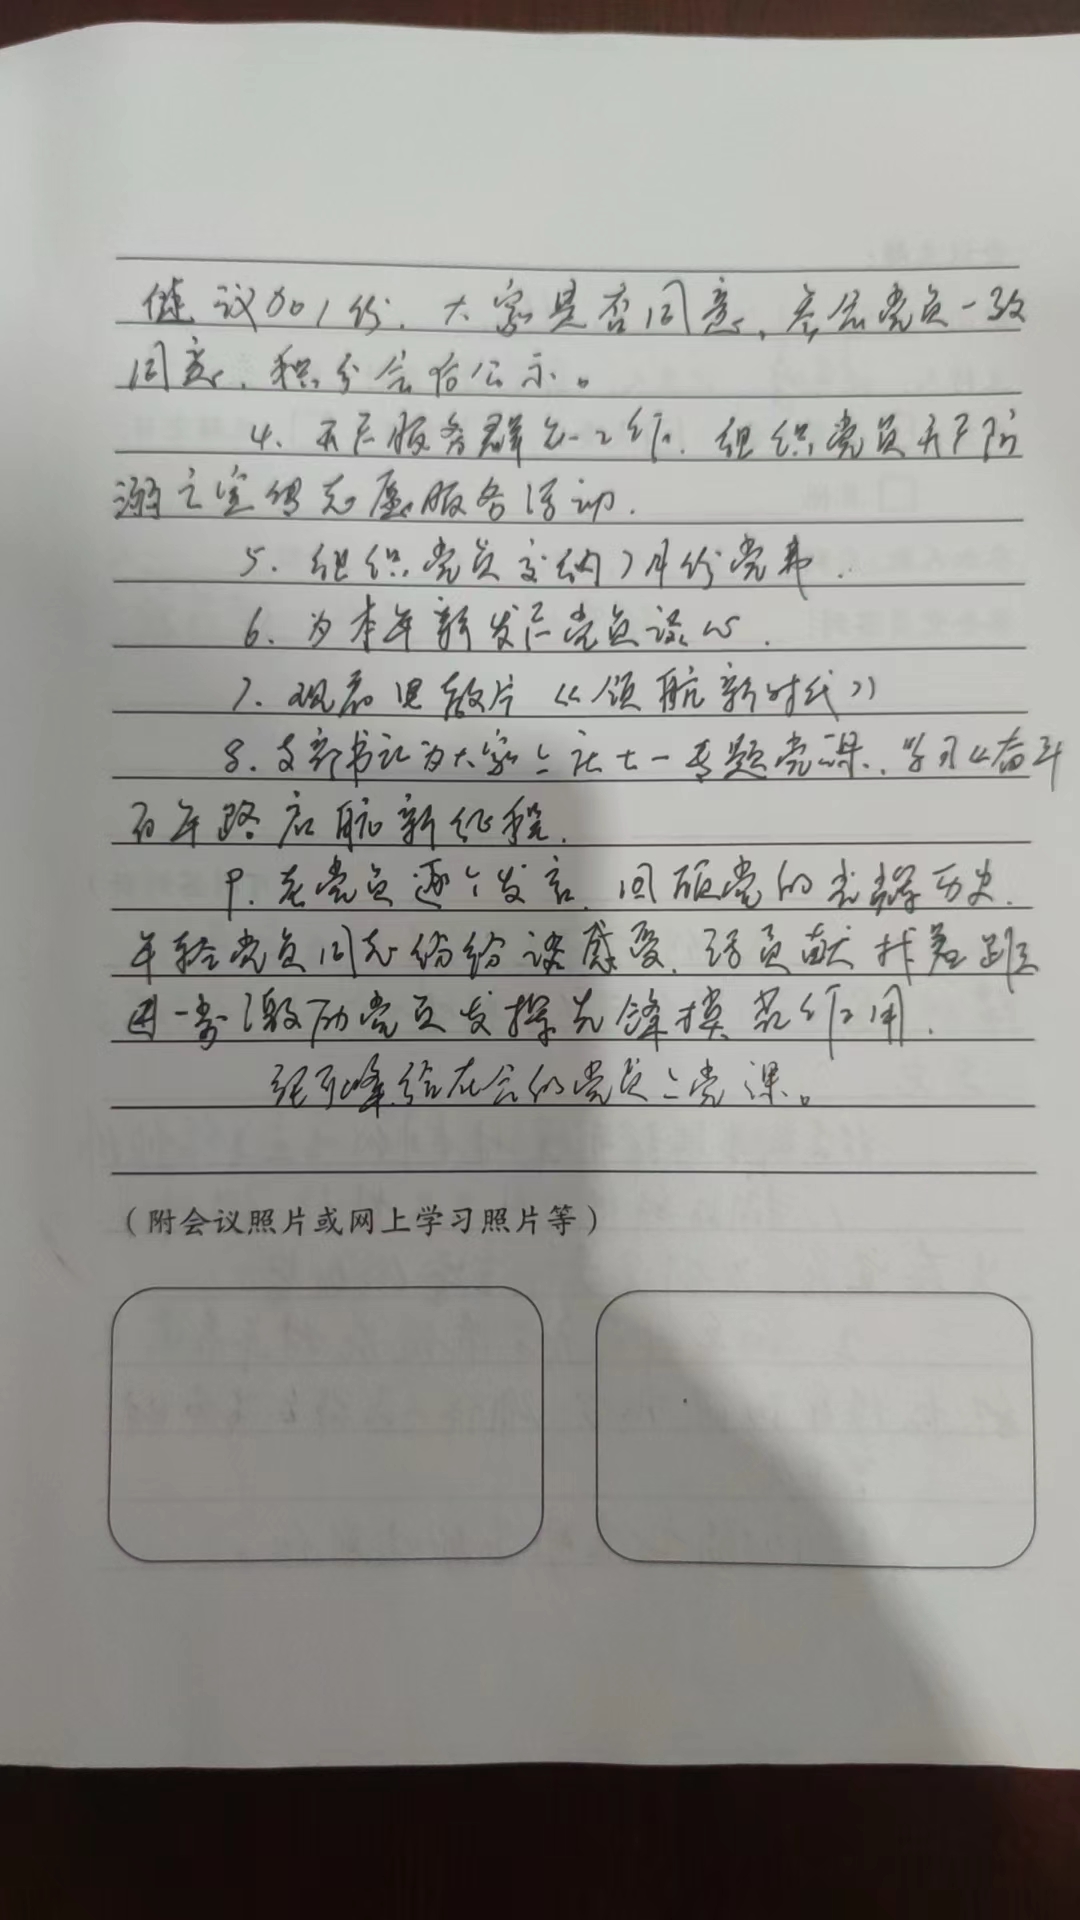 建议加1分，大家是否同意，参会党员一致
同意，积分会后公示。
4、开展服务群众工作，组织党员开展防
溺亡宣传志愿服务活动。
5、组织党员交纳7月份党费。
6、为本年新发展党员谈心。
7、观看电教片《领航新时代》
8、支部书记为大家上社七一专题党课，学习《奋斗
百年路启航新征程。
9、老党员逐个发言，回顾党的光辉历史，
年轻党员同志纷纷谈感受，话贡献找差距
进一步激励党员发挥先锋模范作用。
张 峰给在会的党员上党课。
（附会议照片或网上学习照片等）